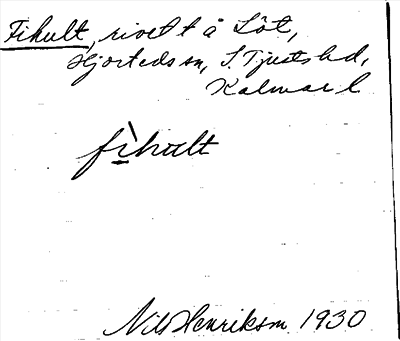 Fihult, rivet t å Löt,
Hjorteds sn, S. Tjusts hd,
Kalmar l
fìhult
Nils Henriksm 1930